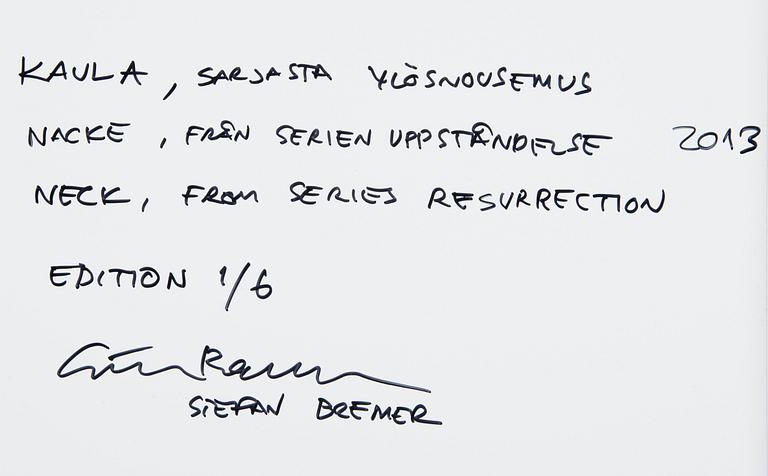 KAULA, SARJASTA YLÖSNOUSEMUS
NACKE, FRÅN SERIEN UPPSTÅNDELSE 2013
NECK, FROM SERIES RESURRECTION
EDITION 1/6
STEFAN BREMER